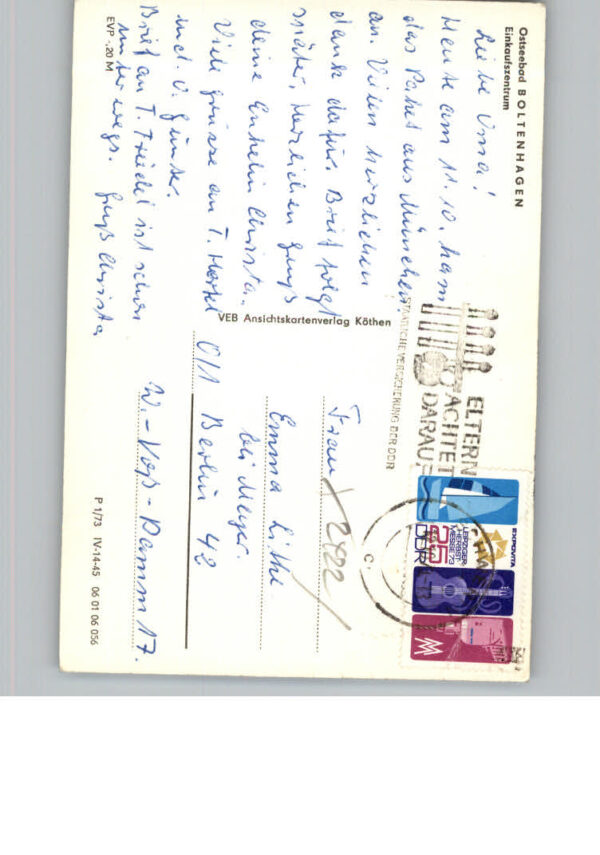 Ostseebad BOLTENHAGEN
Einkaufszentrum
Liebe Oma!
Heute am 11.10. kam
das Paket aus München
an. Vielen herzlichen
dank dafür. Brief folgt
später, herzlichen Gruß
deine Enkelin Christa.
Viele grüsse an T. Hertel
und O. Günter.
Brief an T. Friedel ist schon
unterwegs. Gruß Christa
EVP -,20 M
VEB Ansichtskartenverlag Köthen
STAATLICHE VERSICHERUNG DER DDR
ELTERN
ACHTET
DARAUF
EXPOVITA
LEIPZIGER
HERBST-
MESSE 73
25
DDR
Frau
2422
Emma
bei Meyer
Berlin 42
W.-Voß-Damm 17.
P 1/73 IV-14-45 06 01 06 056